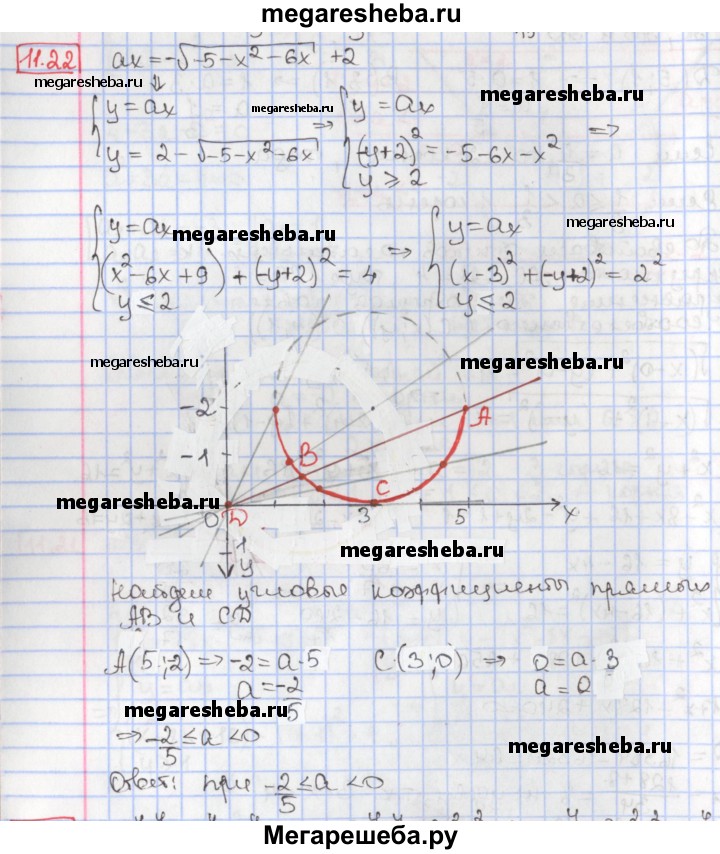 megaresheba.ru
11.22 ax = -√(-5 - x² - 6x) + 2
megaresheba.ru
⇓
{ y = ax
y = 2 - √(-5 - x² - 6x)
megaresheba.ru
⇒ { y = ax
(-y+2)² = -5 - 6x - x²
y ⩾ 2 ⇒
megaresheba.ru
{ y = ax
(x² - 6x + 9) + (-y+2)² = 4
y ≤ 2
megaresheba.ru
⇒ { y = ax
(x-3)² + (-y+2)² = 2²
y ≤ 2
megaresheba.ru
megaresheba.ru
megaresheba.ru
-2
A
-1
B
C
megaresheba.ru
0
D
3
5
x
1
y
megaresheba.ru
Найдем угловые коэффициенты прямых
AB и CD
A(5;-2) ⇒ -2 = a·5 C(3;0) ⇒ 0 = a·3
a = -2/5 a = 0
megaresheba.ru
⇒ -2/5 ≤ a < 0
megaresheba.ru
Ответ: при -2/5 ≤ a < 0
Мегарешеба.ру